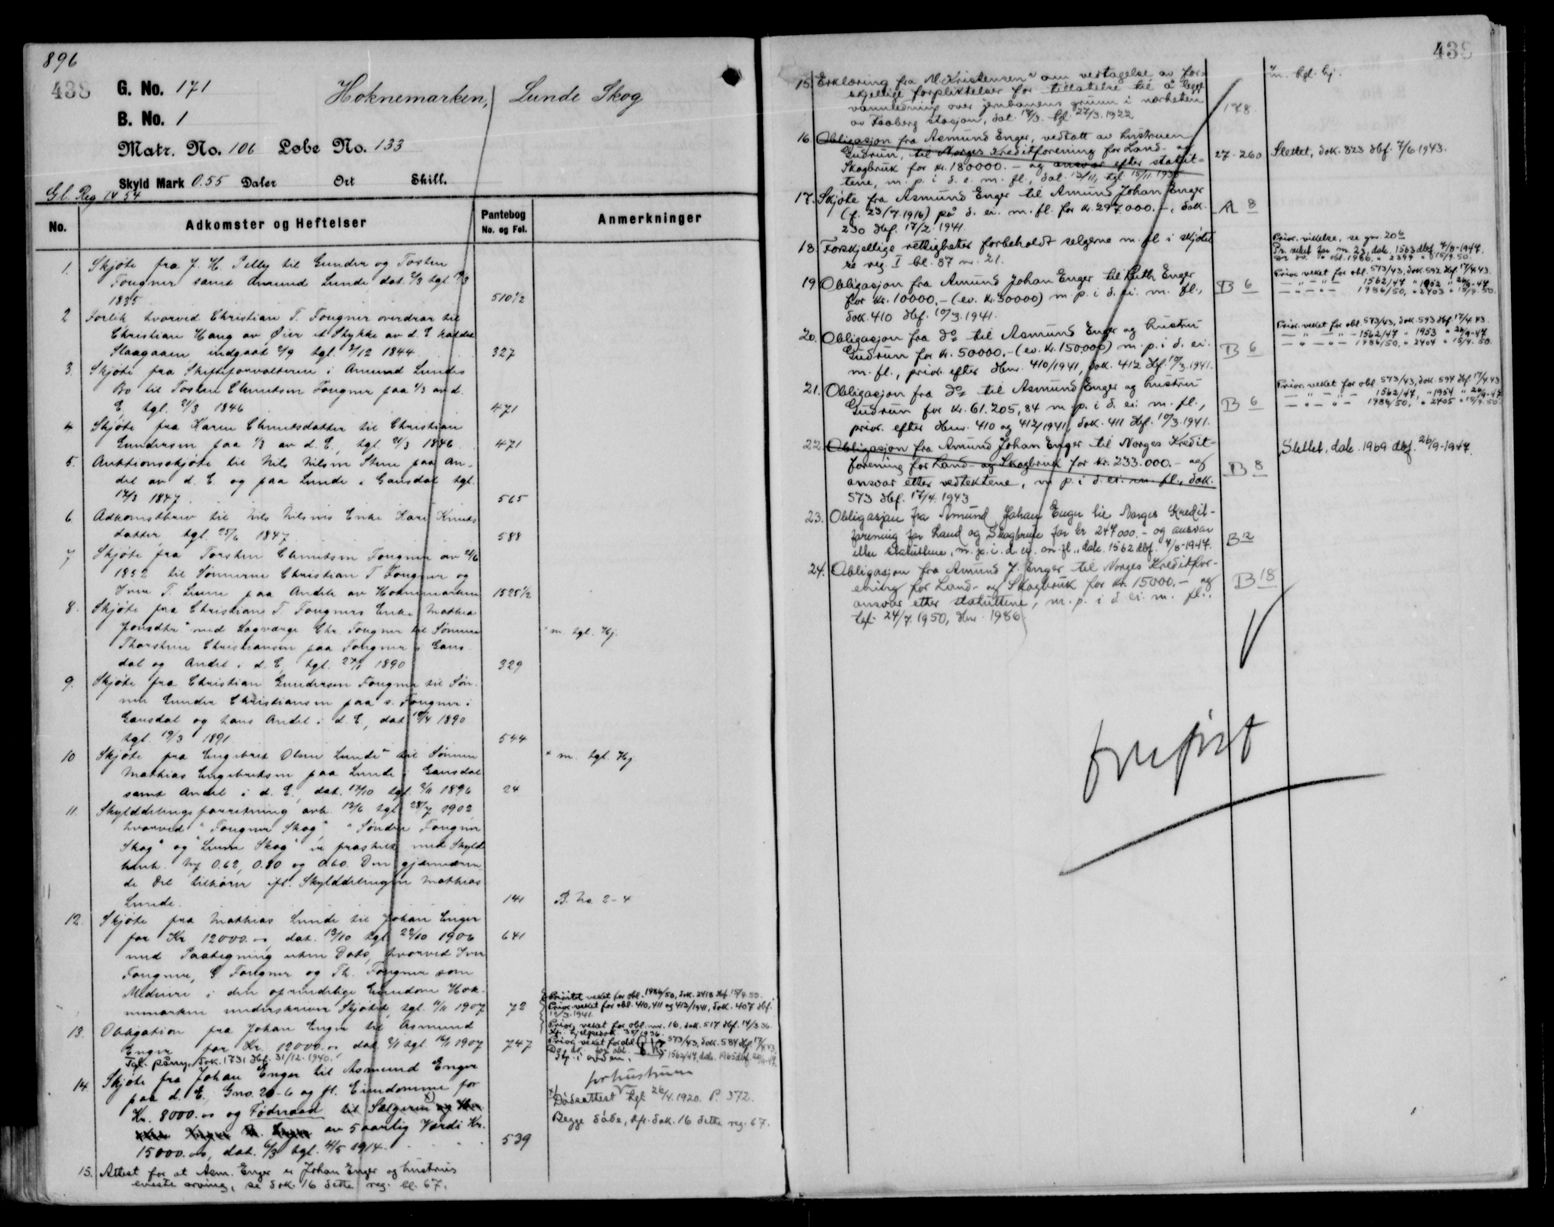 896
438
G. No. 171
Hoknemarken, Lunde Skog
B. No. 1
Matr. No. 106 Løbe No. 133
Skyld Mark 0.55 Daler Ort Skill.
Gl. Reg 14 54
No. Adkomster og Heftelser Pantebog No. og Fol. Anmerkninger
1. Skjøte fra J. H. Pelly til Gunder og Torsten
Fougner samt Amund Lunde dat.
1835 510 1/2
2 Forlik hvorved Christian T. Fougner overdrar til
Christian Haug av Øier et Stykke av d. E. kaldet
Slaagaaen indgaat 2/9 tgl. 1844 327
3. Skjøte fra Skifteforvalteren i Amund Lundes
Bo til Torsten Fougner paa 1/3 av d.
E, tgl. 21/3 1846 471
4 Skjøte fra Karen til Christian
Gundersen paa 1/3 av d. E, tgl. 21/3 1846 471
5. Auktionsskjøte til Nils Nilsen Steine paa An-
del av d. E og paa Lunde i Gausdal tgl.
17/3 1847 565
6 Adkomstbrev til Nils Nilsens Enke Kari Knuds
datter, tgl. 25/6 1847 588
7 Skjøte fra Torsten Fougner av
1852 til Sønnerne Christian T Fougner og
Iver T. Lunde paa Andele av Hoknemarken 1525 1/2
8. Skjøte fra Christian T. Fougners Enke Mathea
med Lagværge Chr. Fougner til Sønnen " m. tgl. Hj.
Thorstein Christiansen paa Fougner i Gaus
dal og Andel i d. E, tgl. 1890 329
9. Skjøte fra Christian Gundersen Fougner til Søn-
nen Gunder Christiansen paa s. Fougner i
Gausdal og hans Andel i d. E, dat. 1890
tgl. 19/3 1891 544
10 Skjøte fra Engebret Olsen Lunde " til Sønnen " m. tgl. Hj
Mathias Engebretsen paa Lunde i Gausdal
samt Andel i d. E, dat. 17/10 tgl. 1896 24
11. Skylddelingsforretning avh. 12/6 tgl. 28/7 1902
hvorved "Fougner Skog", "Søndre Fougner
Skog" og "Lunde Skog" er fraskilt med Skyld
henh. Mk 0.62, 0.80 og 0.60. Den gjenværen
de Del tilhører ifl. Skylddelingen Mathias
Lunde. 141 B. No 2-4
12. Skjøte fra Mathias Lunde til Johan Enger
for Kr. 12000.00, dat. 19/10 tgl. 22/10 1906 641
med Paategning uten Dato, hvorved Iver
Fougner, G. Fougner og Th. Fougner som
Medeiere i den oprindelige Eiendom Hok-
nemarken underskriver Skjøtet, tgl. 1907 72
Prioritet veket for obl. 1986/50, dok. 2418 dbf. 15/9.50.
Prior. veket for obl. 410, 411 og 412/1941, dok. 407 dbf.
10/3.1941.
13. Obligation fra Johan Enger til Asmund
Enger for Kr. 12000.00 dat. tgl. 1907 747
Prior. veket for obl. nr. 16, dok. 517 dbf. 14/3 36.
Prior. veket for obl. 573/43, dok. 584 dbf. 17/4 43
Tgl. påny, dok. 1731 dbf. 31/12.1940.
14 Skjøte fra Johan Enger til Asmund Enger
paa d. E. Gno. 20-6 og fl. Eiendomme for
Kr. 8000.00 og Føderaad til Sælgeren
av 5 aarlig Værdi Kr.
15000.00, dat. tgl. 4/5 1914. 539
for hustruen
x) Dødsattest tgl. 26/4.1920. P. 372.
Begge døde, kfr. dok. 16 dette reg. 67.
15. Attest for at Asm. Enger er Johan Enger og hustrus
eneste arving, se dok 16 dette reg. bl. 67.
438
15. Erklæring fra M. Kristensen " om vedtagelse av for- " m. tgl. hj.
skjellige forpliktelser for tillatelse til å legge
vannledning over jernbanens grunn i nærheten 178
av Faaberg stasjon, dat. tgl. 27/3.1922
16. Obligasjon fra Asmund Enger, vedtatt av hustruen
Gudrun, til Norges Kreditforening for Land- og 27-260 Slettet, dok. 823 dbf. 7/6 1943.
Skogbruk for kr. 180000.- og ansvar efter statut-
tene, m. p. i d. e. m. fl., dat. 12/11, tgl. 15/11 1935
17. Skjøte fra Asmund Enger til Amund Johan Enger
(f. 23/7.1916) på d. ei. m. fl. for kr. 297000.-, dok. A 8
230 dbf. 17/2.1941
18. Forskjellige rettigheter forbeholdt selgerne m. fl i skjøtet
se reg. I bl. 87 nr. 21.
Prior. vikelse, se gnr. 20
Pr. veket for nr. 23, dok. 1563 dbf. 4/8-1947.
19. Obligasjon fra Amund Johan Enger til Ruth Enger
for kr. 10000.- (ev. kr. 30000) m p. i d. ei. m. fl., B 6
dok 410 dbf. 10/3.1941.
Prior veket for obl. 573/43, dok. 592 dbf 17/4.43.
- " - " - 1562/47 " 1952 " 26/9-47
- " - " - 1986/50, " 2403 " 15/9.50.
20. Obligasjon fra do til Asmund Enger og hustru
Gudrun for kr. 50000.- (ev. kr. 150,000) m. p. i d. ei. B 6
m. fl., prior. efter dbnr. 410/1941, dok. 412 dbf. 10/3.1941.
Prior. veket for obl. 573/43, dok. 593 dbf 17/4.43.
- " - " - 1562/47 " 1953 " 26/9-47
- " - " - 1986/50, " 2404 " 15/9.50.
21. Obligasjon fra do til Asmund Enger og hustru
Gudrun for kr. 61.205,84 m p. i d. ei. m. fl., B 6
prior. efter dbnr. 410 og 412/1941, dok. 411 dbf. 10/3.1941.
Prior. veket for obl 573/43, dok. 594 dbf 17/4.43
- " - " - 1562/47, " 1954 " 26/9-47
- " - " - 1986/50, " 2405 " 15/9.50.
22. Obligasjon fra Amund Johan Enger til Norges Kredit-
forening for Land- og Skogbruk for kr. 233.000.- og B 8 Slettet, dok. 1969 dbf. 26/9-1947.
ansvar etter vedtektene, m p. i d. ei. m. fl., dok.
573 dbf. 17/4. 1943
23. Obligasjon fra Amund Johan Enger til Norges Kredit-
forening for Land og Skogbruk for kr 247000.- og ansvar
etter statuttene, m. p. i. d. ei. m. fl., dok. 1562 dbf. 4/8-1947. B 2
24. Obligasjon fra Amund J. Enger til Norges Kreditfor-
ening for Land- og Skogbruk for kr. 15000.- og B 18
ansvar etter statuttene, m. p. i d. ei. m. fl.
tgl. 24/7. 1950, dbnr. 1986